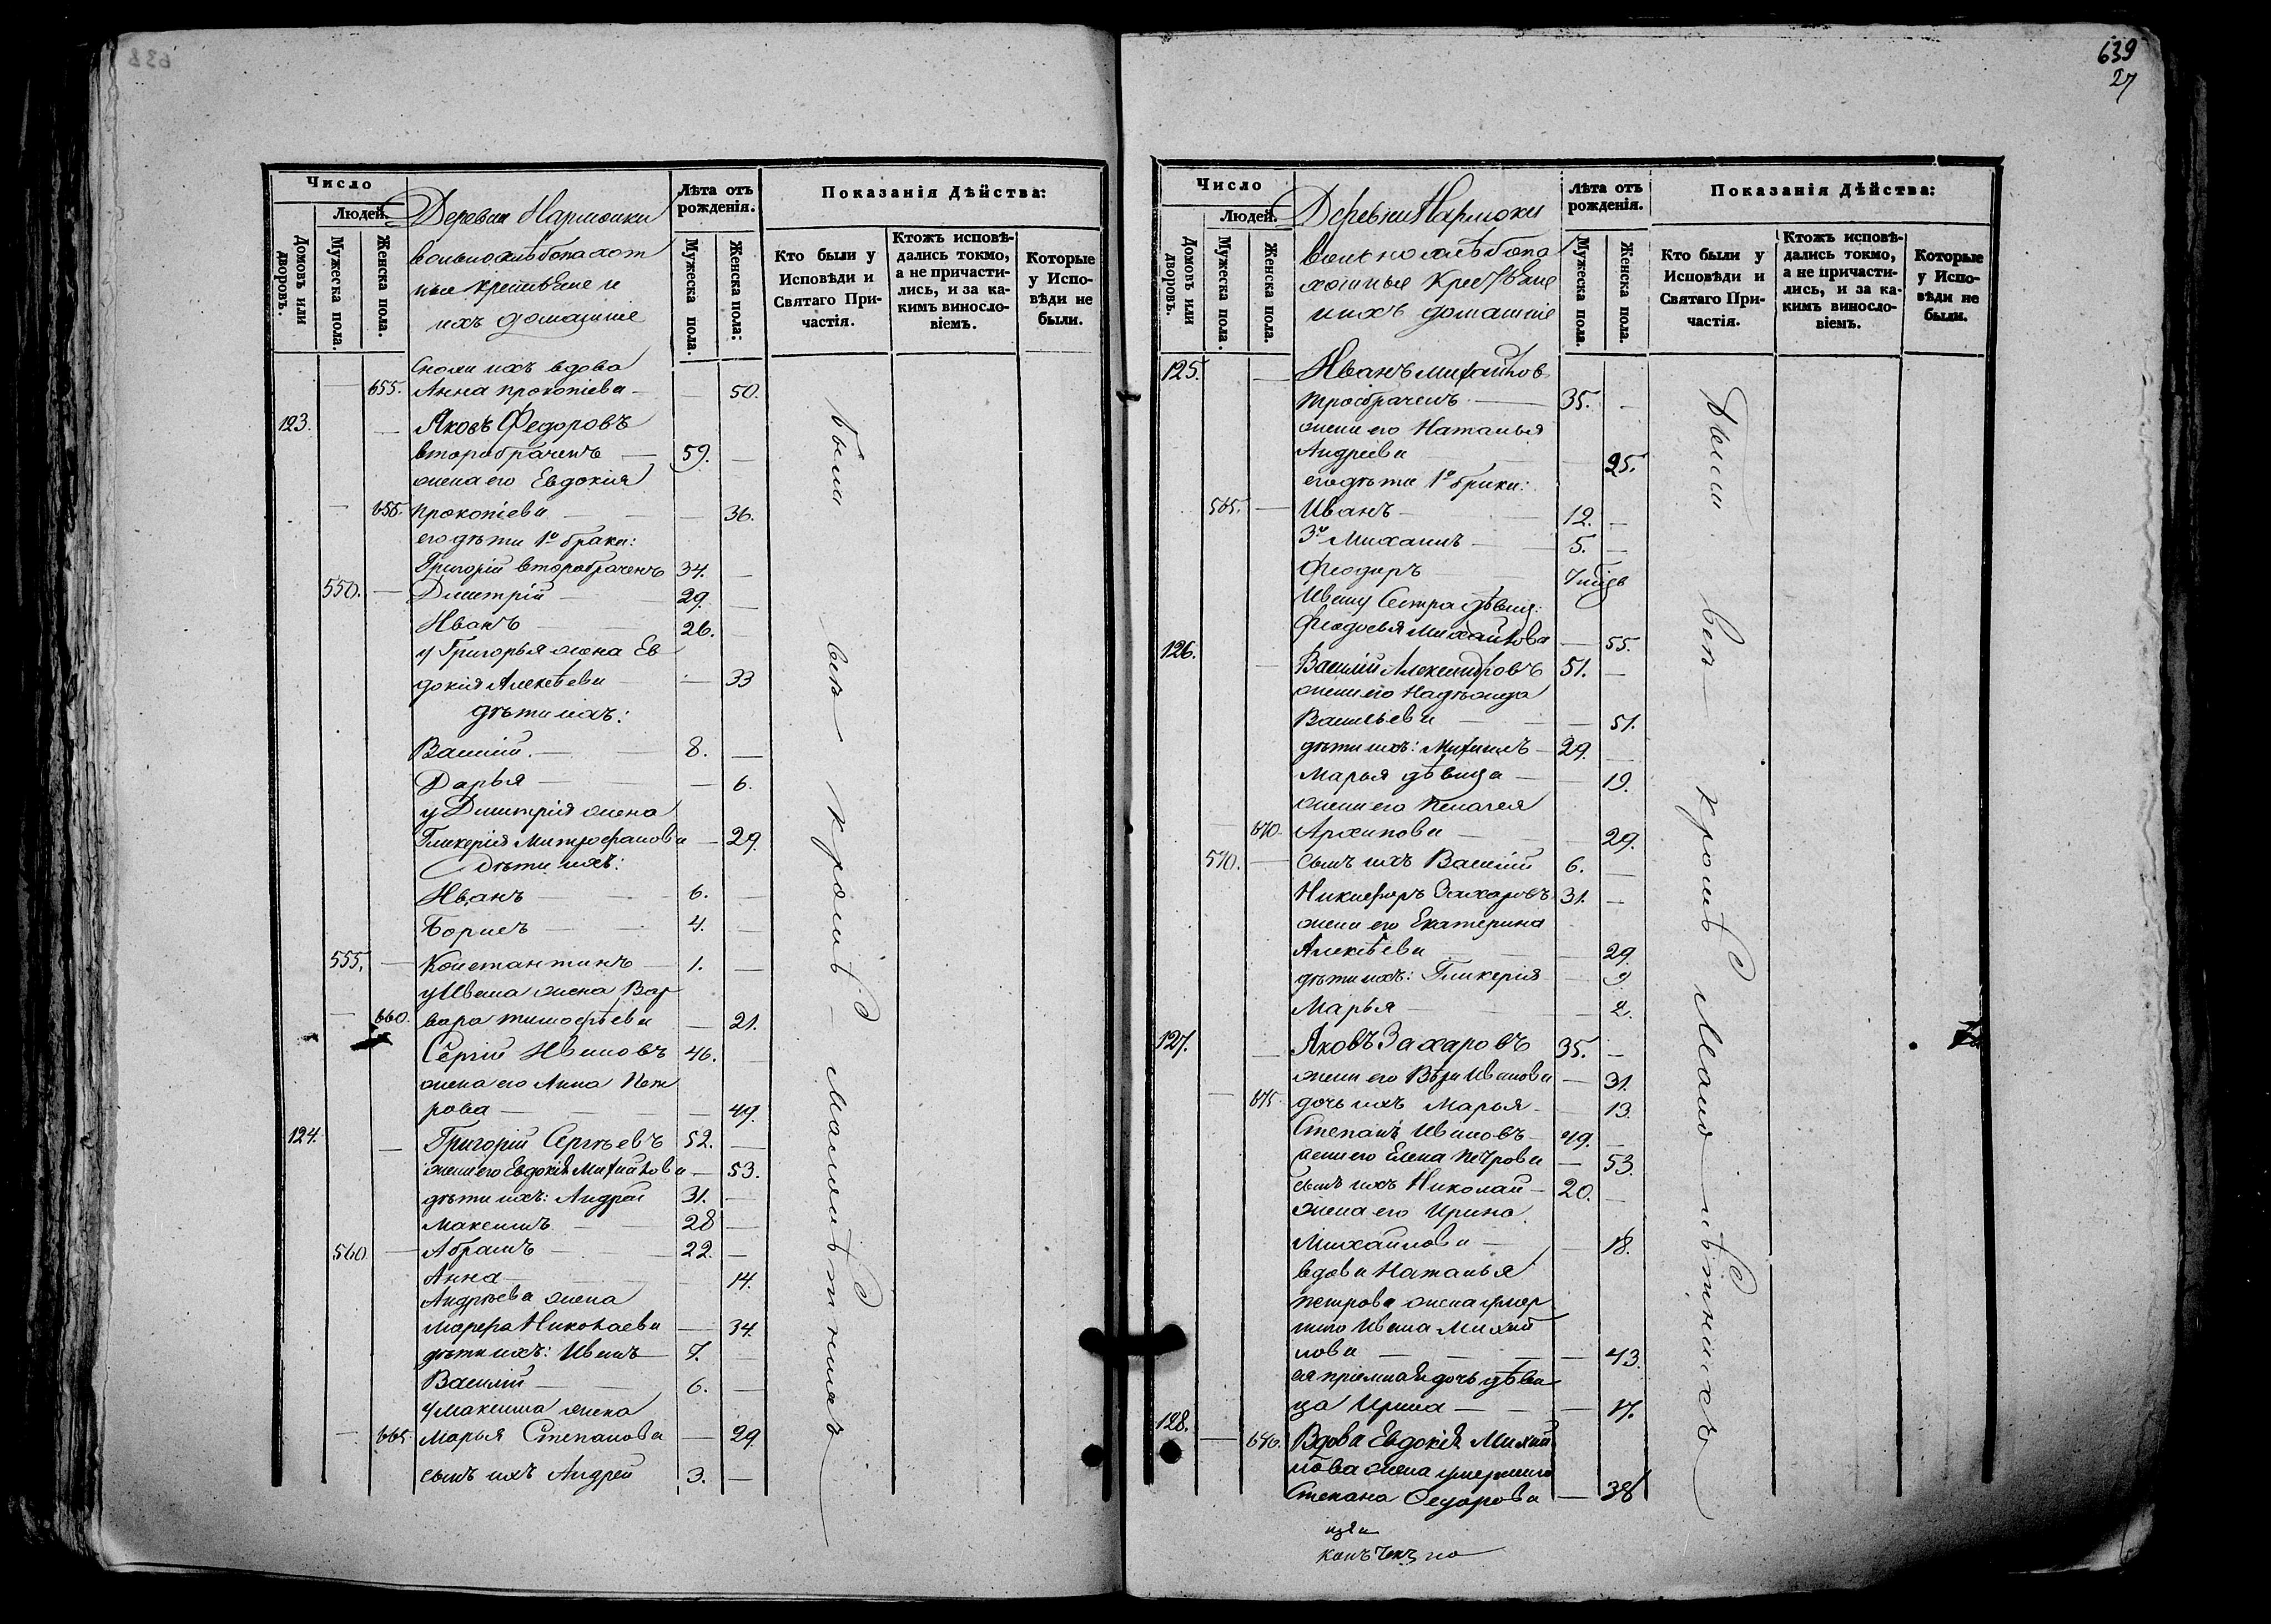 639
27
Число
Людей.
Домовъ или дворовъ.
Мужеска пола.
Женска пола.
Деревни Нармонки
вольнохлѣбопахот
ные крестьяне и
ихъ домашніе
Лѣта отъ рожденія.
Мужеска пола.
Женска пола:
Показанія Дѣйства:
Кто были у Исповѣди и Святаго Причастія.
Ктожъ исповѣдались токмо, а не причастились, и за какимъ винословіемъ.
Которые у Исповѣди не были.
ихъ вдова
655. Анна Прокопіева — 50.
123. Яковъ Федоровъ
второбраченъ — 59.
жена его Евдокія
656. Прокопіева — 36.
его дѣти 1º брака:
Григорій второбраченъ 34.
550. Димитрій — 29.
Иванъ — 26.
у Григорья жена Ев
докія Алексѣева — 33
дѣти ихъ:
Василій — 8.
Дарья — 6.
у Димитрія жена
Гликерія Митрофанова — 29.
дѣти ихъ:
Иванъ — 6.
Борисъ — 4.
555. Константинъ — 1.
у Ивана жена Вар
660. вара Тимофѣева — 21.
Сергій Ивановъ 46.
жена его Анна Пет
рова — 49.
124. Григорій Сергѣевъ 52.
жена его Евдокія Михайлова — 53.
дѣти ихъ: Андрей 31.
Максимъ — 28
560. Абрамъ — 22.
Анна — 14.
Андрѣева жена
Марфа Николаева — 34.
дѣти ихъ: Иванъ — 7.
Василій — 6.
у Максима жена
665. Марья Степанова — 29.
сынъ ихъ Андрей 3.
были всѣ кромѣ малолѣтнихъ
Число
Людей.
Домовъ или дворовъ.
Мужеска пола.
Женска пола.
Деревни Нармонки
вольнохлѣбопа
хотные крестьяне
и ихъ домашніе
Лѣта отъ рожденія.
Мужеска пола.
Женска пола.
Показанія Дѣйства:
Кто были у Исповѣди и Святаго Причастія.
Ктожъ исповѣдались токмо, а не причастились, и за какимъ винословіемъ.
Которые у Исповѣди не были.
125. Иванъ Михайлов
троебраченъ — 35.
жена его Наталья
Андреева — 25.
его дѣти 1º брака:
565. Иванъ — 12.
3º Михаилъ — 5.
Феодоръ —
Ивану сестра дѣвица:
Феодосья Михайлова — 55.
126. Василій Александровъ 51.
жена его Надѣжда
Васильева — 51.
дѣти ихъ: Михаилъ — 29.
Марья дѣвица — 19.
жена его Пелагея
670. Архипова — 29.
570. сынъ ихъ Василій 6.
Никифоръ Захаровъ 31.
жена его Екатерина
Алексѣева — 29.
дѣти ихъ: Гликерія — 9
Марья — 2.
127. Яковъ Захаровъ 35.
жена его Вѣра Иванова — 31.
675. дочь ихъ Марья — 13.
Степанъ Ивановъ — 49.
жена его Елена Петрова — 53.
сынъ ихъ Николай — 20.
жена его Ирина
Михайлова — 18.
вдова Наталья
Петрова жена умер
шаго Ивана Михай
лова — 43.
ея пріемная дочь дѣви
ца Ирина — 17.
128. Вдова Евдокія Михай
лова жена умершаго
Степана Федорова — 38
были всѣ кромѣ малолѣтнихъ